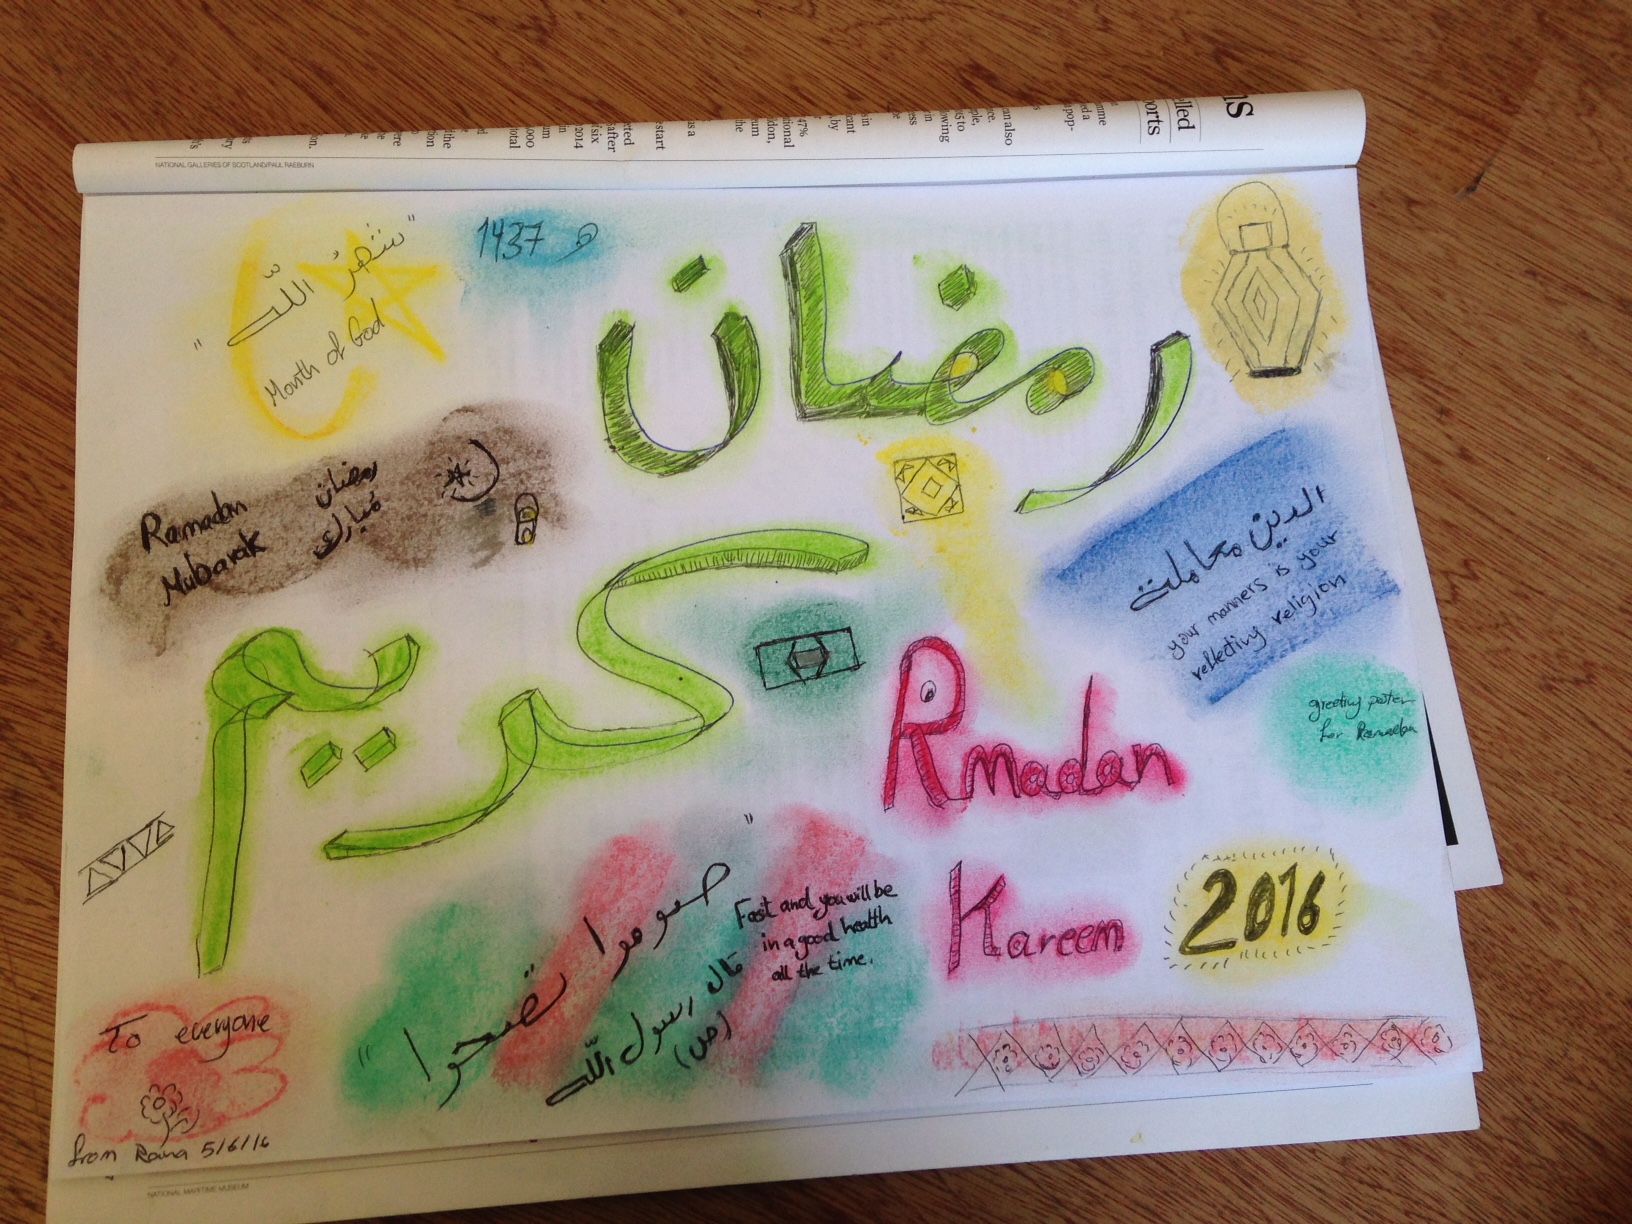 NATIONAL GALLERIES OF SCOTLAND/PAUL RAEBURN
"شهرُ اللّه"
Month of God
1437 هـ
رمضان
كريم
Ramadan
Mubarak
رمضان
مُبارك
الدين معاملة
your manners is your
reflecting religion
greeting poster
for
Rmadan
Kareem
2016
"صوموا تصحوا"
قال رسول اللّه
(ص)
Fast and you will be
in a good health
all the time.
To everyone
from Rana 5/6/16
NATIONAL MARITIME MUSEUM